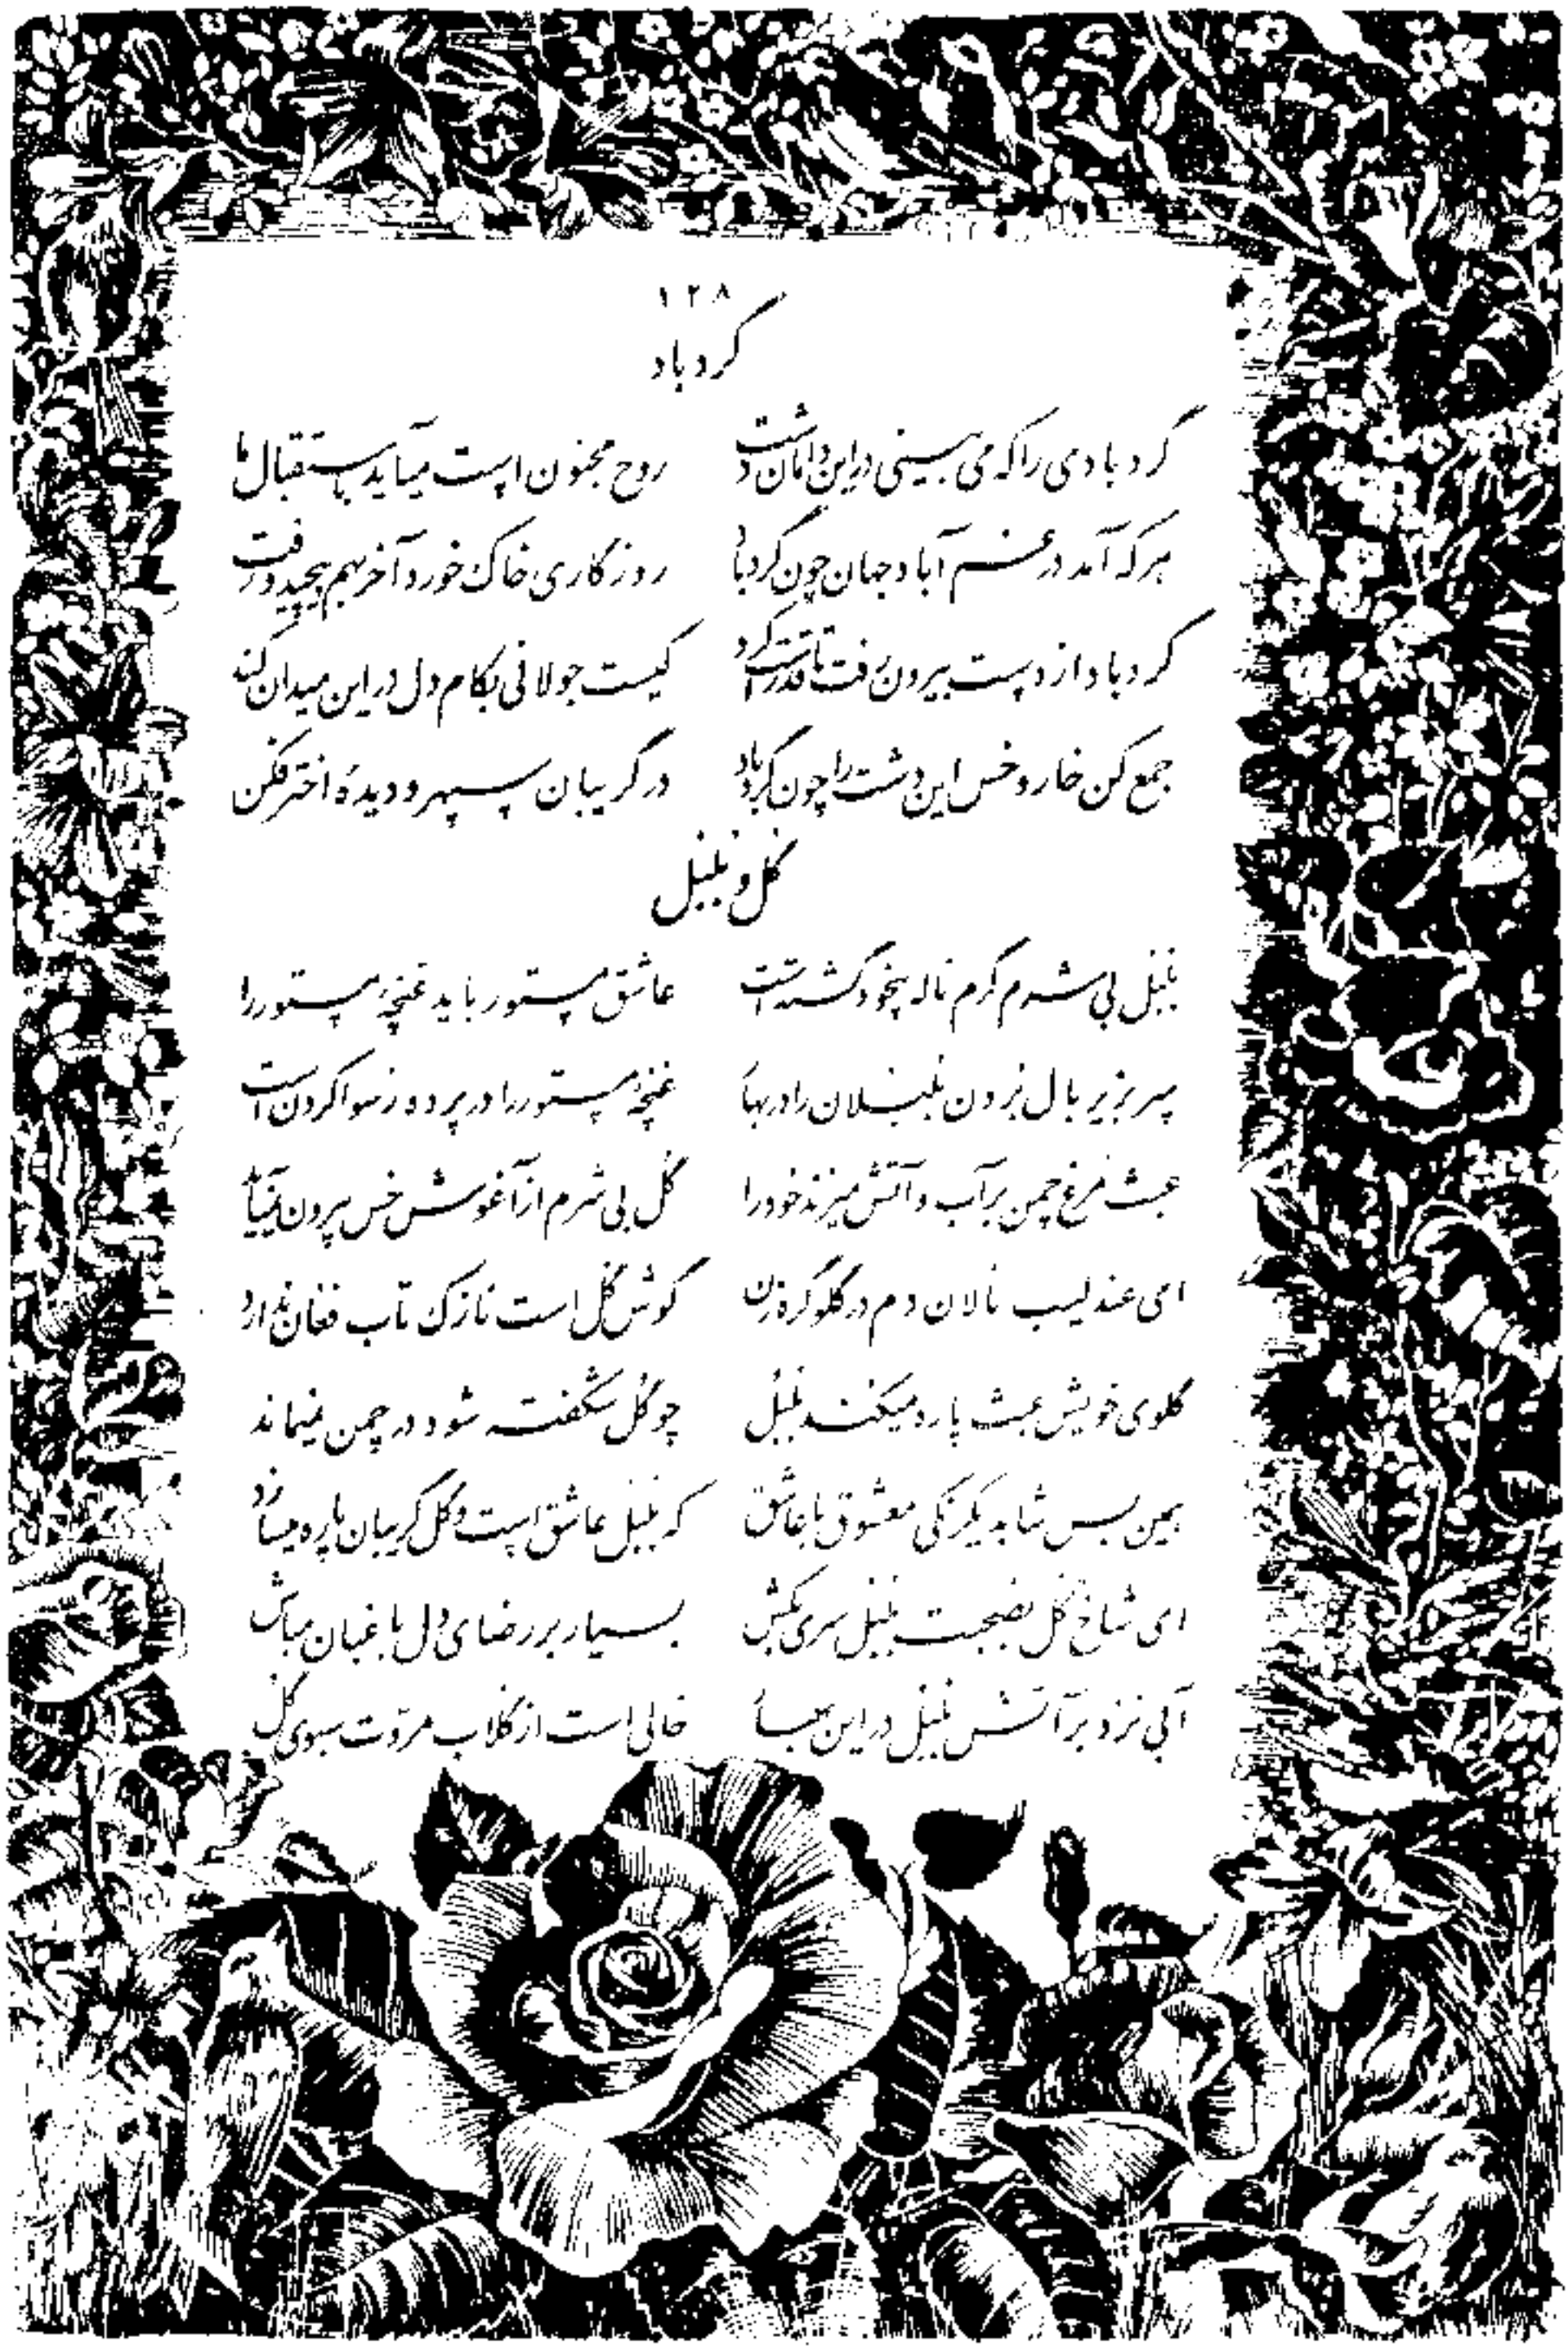 ۱۲۸
گردباد
گردبادی را که می بینی در این دامان دشت روح مجنون است میآید باستقبال ما
هر که آمد در غم آباد جهان چون گردباد روزگاری خاک خورد آخر بهم پیچید و رفت
گردباد از دست بیرون رفت تا قد راست کرد کیست جولانی بکام دل در این میدان کند
جمع کن خار و خس این دشت را چون گردباد در گریبان سپهر و دیدهٔ اختر فکن
گل و بلبل
بلبل بی شرم گرم ناله بیخود گشته است عاشق مستور باید غنچهٔ مستور را
سر بزیر بال بردن بلبلان را در بهار غنچهٔ مستور را در پرده رسوا کردن است
عبث مرغ چمن بر آب و آتش میزند خود را گل بی شرم از آغوش خس بیرون نمیآید
ای عندلیب نالان دم در گلو گره زن گوش گل است نازک تاب فغان ندارد
گلوی خویش عبث پاره میکند بلبل چو گل شکفته شود در چمن نمیماند
همین بس شاهد یکرنگی معشوق با عاشق که بلبل عاشق است و گل گریبان پاره میسازد
ای شاخ گل بصحبت بلبل سری بکش بسیار بر رضای دل باغبان مباش
آبی نزد بر آتش بلبل در این بهار خالی است از گلاب مروّت سبوی گل